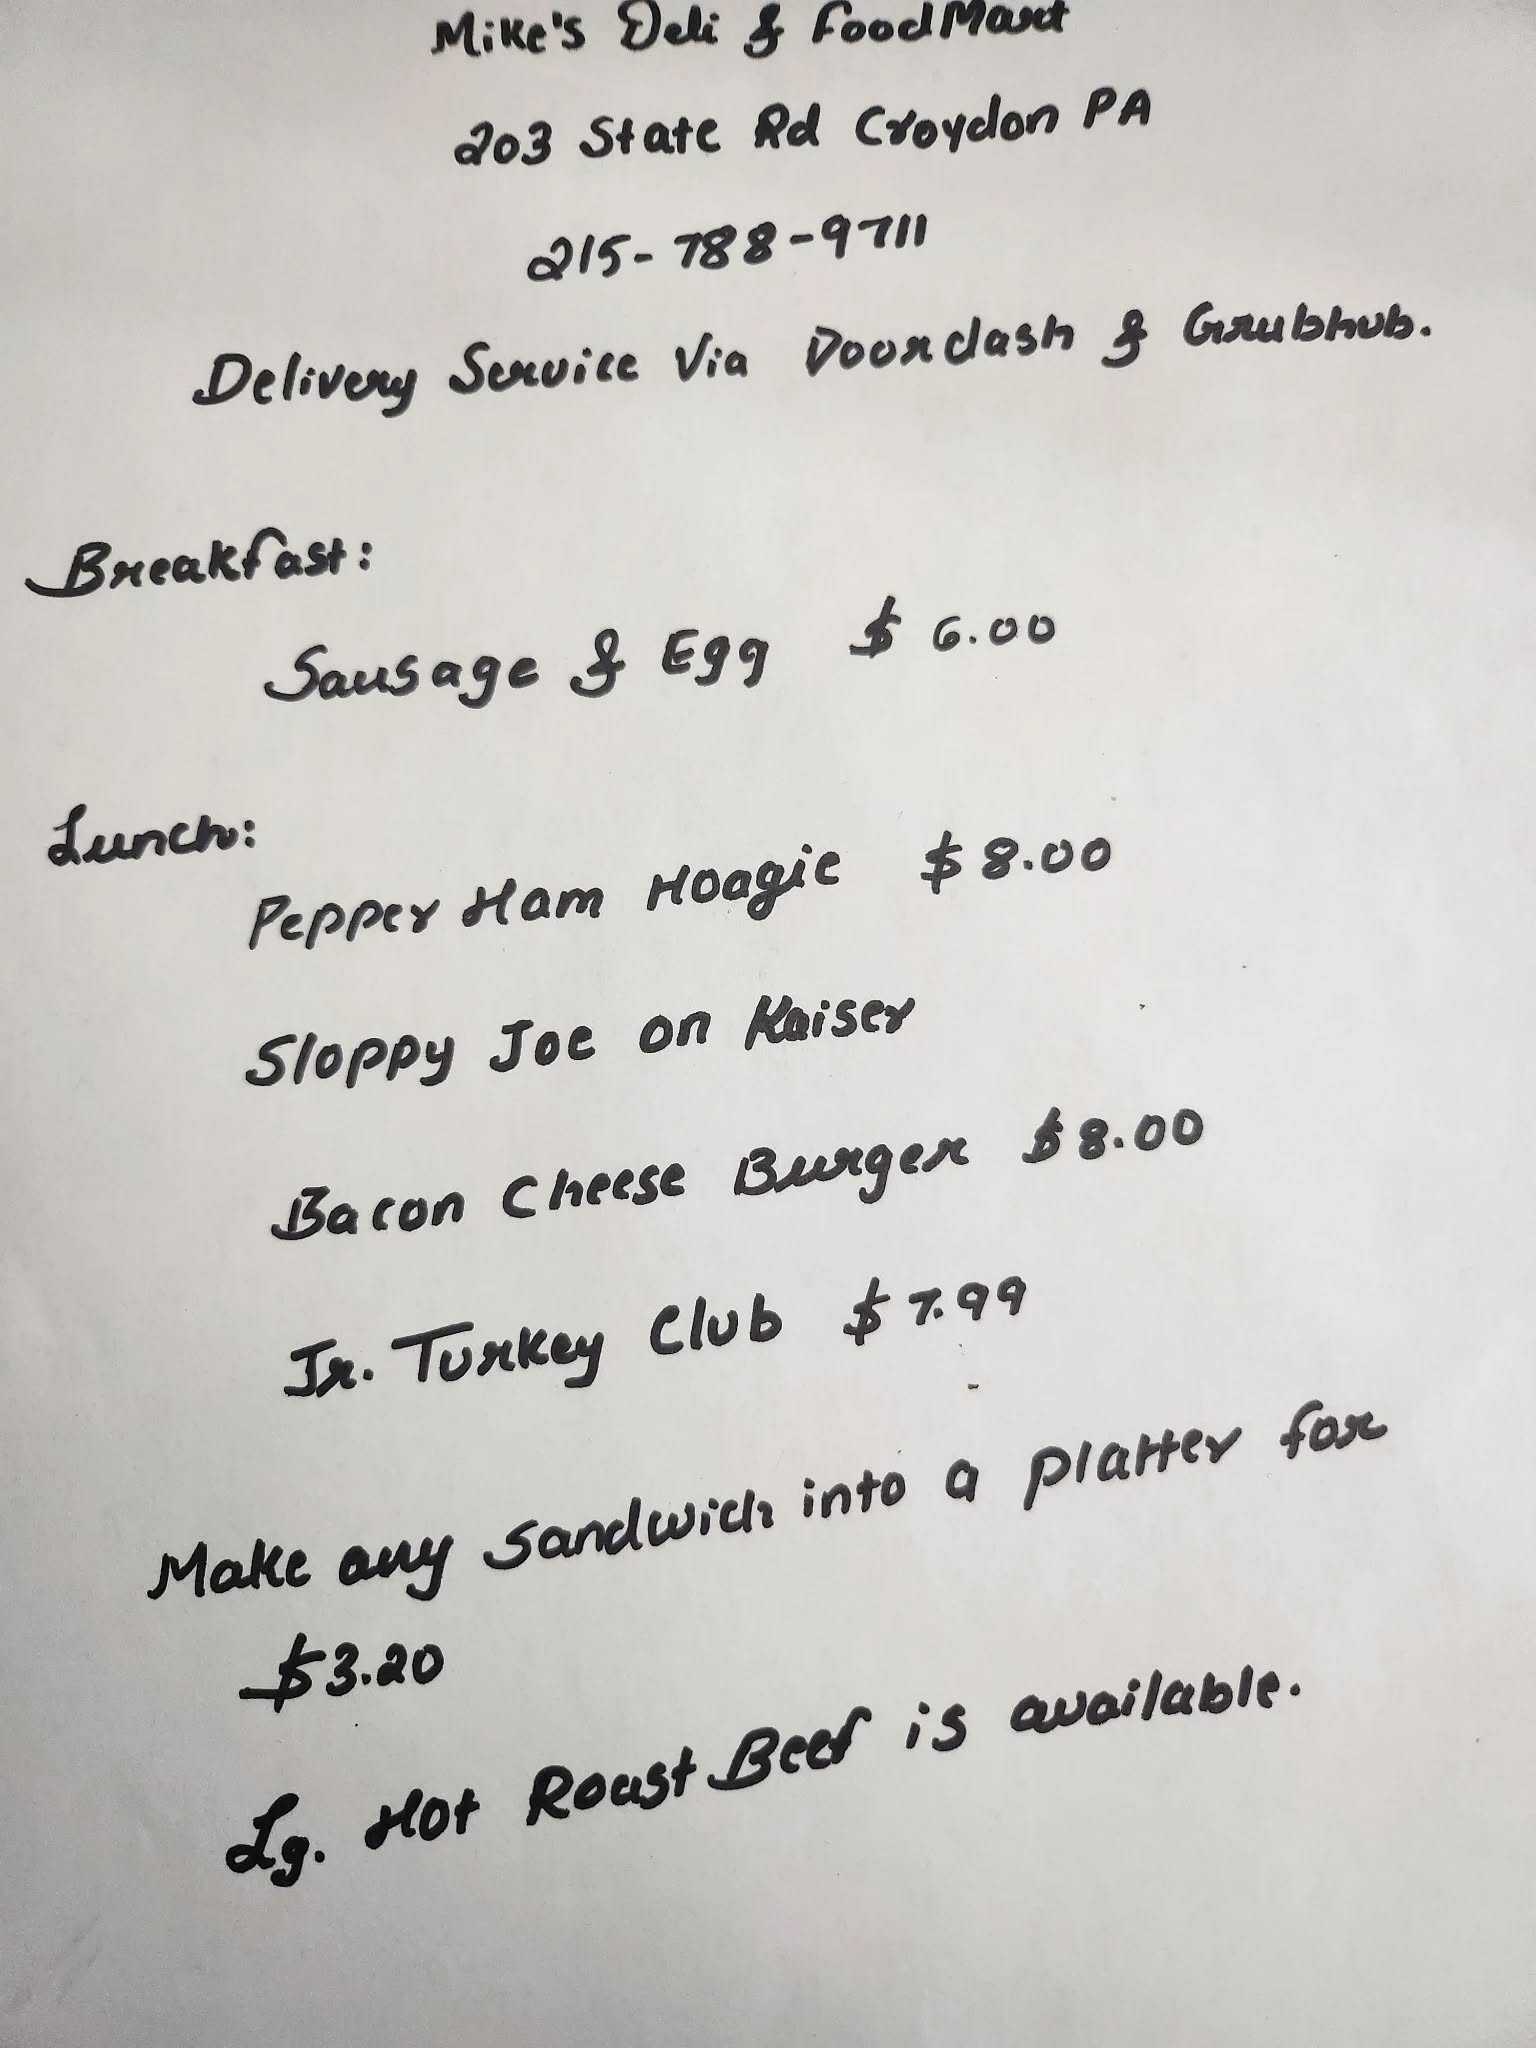 Mike's Deli & FoodMart
203 State Rd Croydon PA
215-788-9711
Delivery Service Via Doordash & Grubhub.
Breakfast:
Sausage & Egg $ 6.00
Lunch:
Pepper Ham Hoagie $8.00
Sloppy Joe on Kaiser
Bacon Cheese Burger $8.00
Jr. Turkey Club $7.99
Make any sandwich into a platter for
$3.20
Lg. Hot Roast Beef is available.